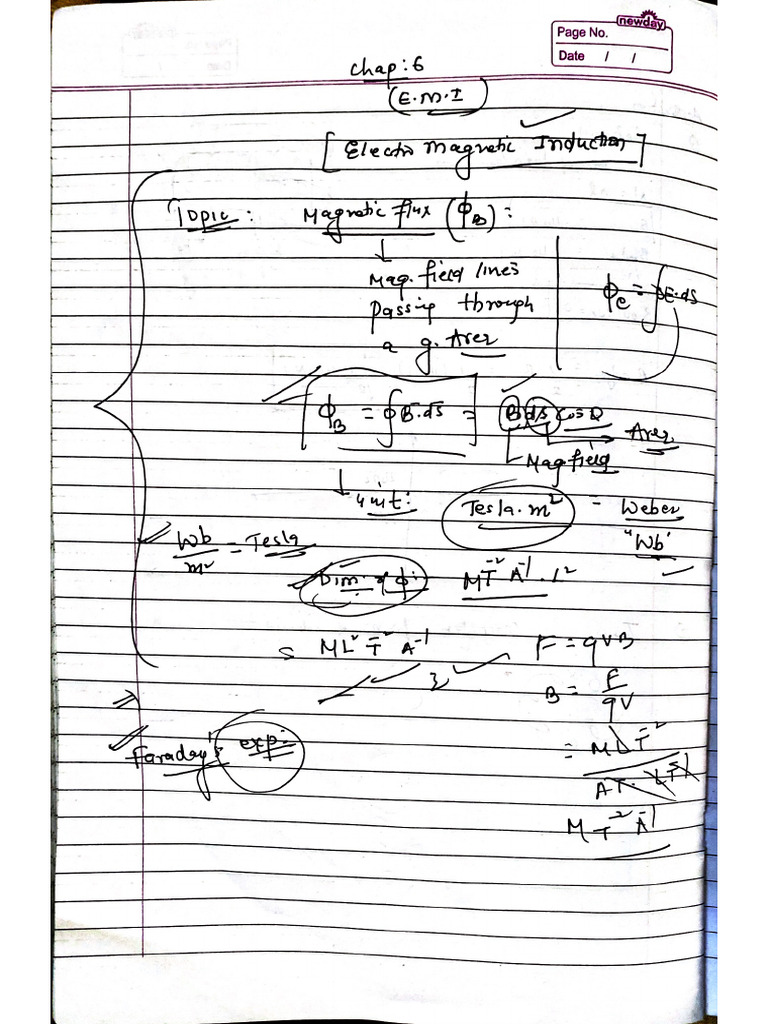 newday
Page No.
Date / /
Chap: 6
(E.M.I)
[Electro Magnetic Induction]
Topic: Magnetic flux (ϕ_B):
↓
Mag. field lines
passing through
a g. Area
ϕ_e = ∮E.ds
ϕ_B = ∮B.ds = B ds cos θ
→ Area
Mag field
↓ unit: Tesla.m² = Weber
"Wb"
Wb/m² = Tesla
Dim. of ϕ: MT⁻²A⁻¹.L²
ML²T⁻²A⁻¹
F = qVB
B = F/qV
= MLT⁻²/AT.LT⁻¹
MT⁻²A⁻¹
Faraday's exp: